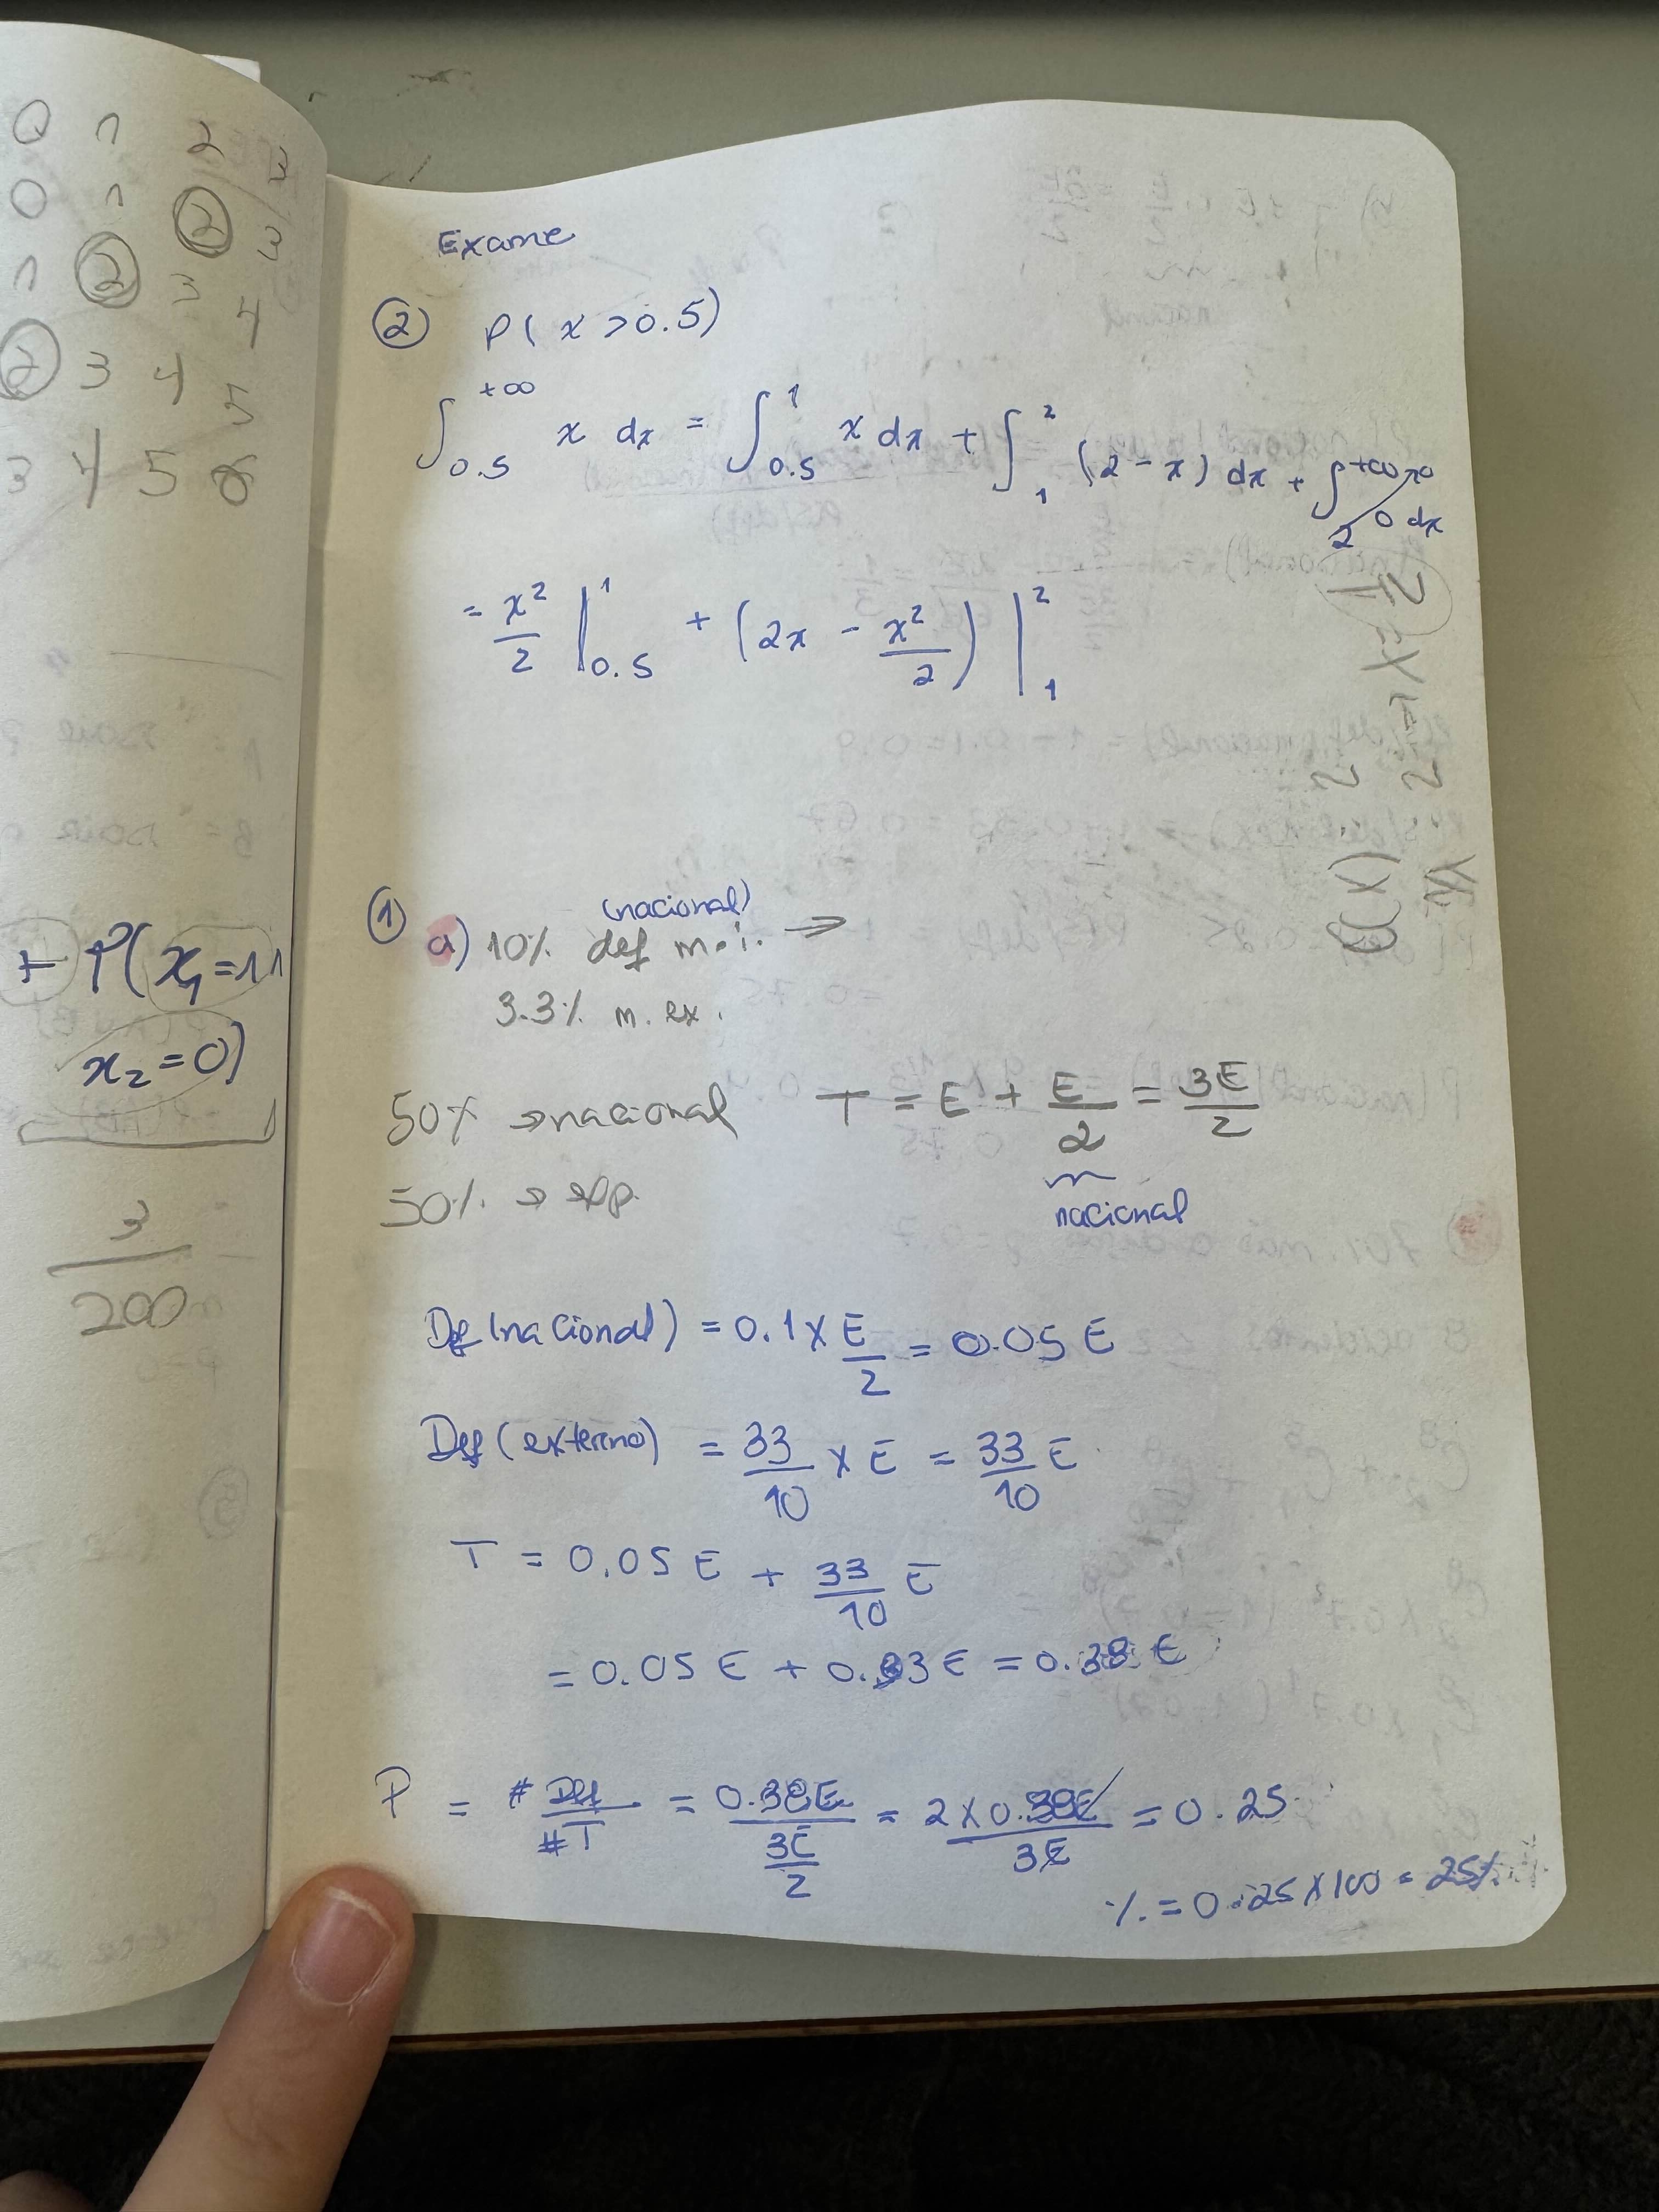 0 1 2 3
0 1 2 3
1 2 3 4
2 3 4 5
3 4 5 6
+ P(x₁=1
x₂=0)
3
200
Exame
② P(x > 0.5)
∫_{0.5}^{+∞} x dx = ∫_{0.5}^{1} x dx + ∫_{1}^{2} (2 - x) dx + ∫_{2}^{+∞} 0 dx
= x²/2 |_{0.5}^{1} + (2x - x²/2) |_{1}^{2}
① a) 10% def m.i. (nacional) →
3.3% m. ex.
50% → nacional T = E + E/2 = 3E/2
50% →
nacional
Def (nacional) = 0.1 x E/2 = 0.05 E
Def (externo) = 33/10 x E = 33/10 E
T = 0.05 E + 33/10 E
= 0.05 E + 0.33 E = 0.38 E
P = # Def / # T = 0.38E / (3E/2) = 2 x 0.38E / 3E = 0.25
% = 0.25 x 100 = 25%